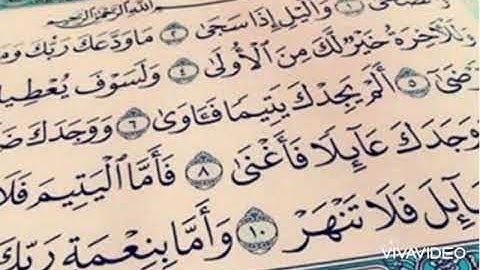 ٱللَّهِ ٱلرَّحْمَٰنِ ٱلرَّحِيمِ
وَٱلضُّحَىٰ ١ وَٱلَّيْلِ إِذَا سَجَىٰ ٢ مَا وَدَّعَكَ رَبُّكَ وَمَ
وَلَلْأٓخِرَةُ خَيْرٌ لَّكَ مِنَ ٱلْأُولَىٰ ٤ وَلَسَوْفَ يُعْطِي
رْضَىٰٓ ٥ أَلَمْ يَجِدْكَ يَتِيمًا فَـَٔاوَىٰ ٦ وَوَجَدَكَ ضَ
وَجَدَكَ عَآئِلًا فَأَغْنَىٰ ٨ فَأَمَّا ٱلْيَتِيمَ فَلَا
سَّآئِلَ فَلَا تَنْهَرْ ١٠ وَأَمَّا بِنِعْمَةِ رَبِّكَ
VIVAVIDEO